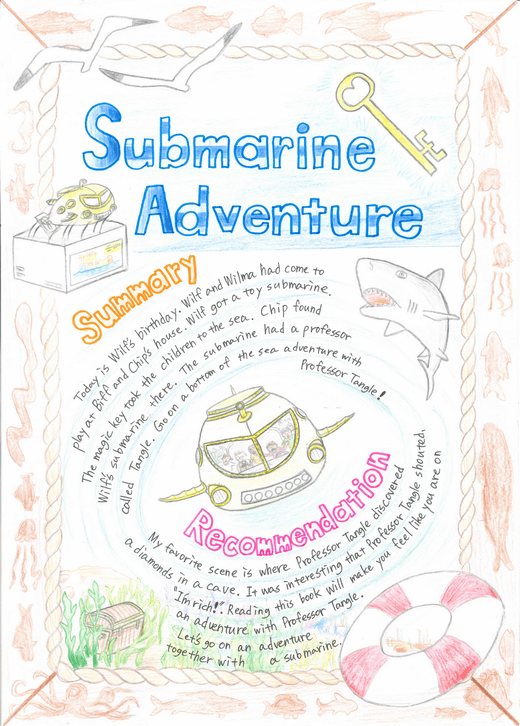 Submarine
Adventure
Summary
Today is Wilf's birthday. Wilf and Wilma had come to
play at Biff and Chip's house. Wilf got a toy submarine.
The magic key took the children to the sea. Chip found
Wilf's submarine there. The submarine had a professor
called Tangle. Go on a bottom of the sea adventure with
Professor Tangle!
Recommendation
My favorite scene is where Professor Tangle discovered
a diamonds in a cave. It was interesting that Professor Tangle shouted,
"I'm rich!". Reading this book will make you feel like you are on
an adventure with Professor Tangle.
Let's go on an adventure
together with a submarine.